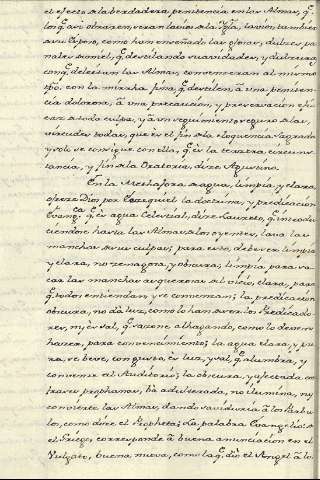 el efecto de la berdadera penitencia en las Almas, q.e
los q.e asi obraren, veran labios de la Yg.a, la vion, tambien
de su Esposo, como han enseñado las glosas, dulces pa-
nales de miel, q.e destilando suavidades, y dulzuras
con q.e deleitan las Almas, con
tpo, con la mirrha fina, q.e destilen, à una peniten-
cia dolorosa, à una precaucion, y preservacion efi-
caz de toda culpa, y à un seguimiento seguro de las
virtudes todas, que es el fin de la eloquencia sagrada
y solo se consigue con ella, q.e es la texera circuns-
tancia, y fin de la Oratoria, dice Agustino.
En la Metafora de agua, limpia, y clara,
ofrece Dios por Ezequiel la doctrina, y predicacion
Evang.ca q.e es agua Celestial, dice Laureto, q.e introdu-
ciendose hasta las Almas de los oyentes, lava las
manchas de sus culpas; para esto, debe ser limpia
y clara, no zenagosa, y obscura; limpia, para sa-
car las manchas asquerosas del vicio, clara, para
q.e todos entiendan, y se convenzan; la predicacion
obscura, no dà luz, como lo han de ser los Predicado-
res, ni es sal, q.e sazone alhagando, como lo deven
hacer, para convencimiento; la agua clara, y pu-
ra, se bebe, con gusto, es luz, y sal, q.e alumbra, y
convence al Auditorio; la obscura, y afectada con
frases prophanas, bà adulterada, no ilumina, ni
convierte las Almas, dando sabiduria à los Parbu-
los, como dice el Propheta; La palabra Evangelio de
el Griego, corresponde à buena anunciacion en el
Vulgato, buena nueva, como la q.e dio el Angel à los